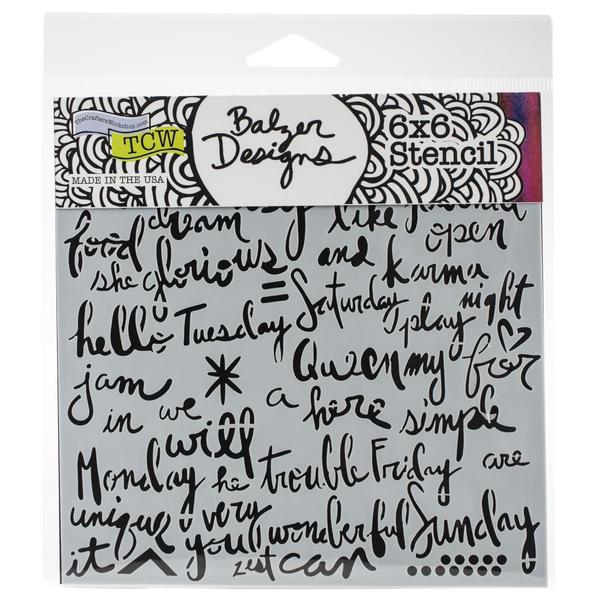 TheCraftersWorkshop.com
TCW
MADE IN THE USA
Balzer
Designs
6x6
Stencil
food dream like open
she glorious and karma
hello Tuesday = Saturday play night
jam * Queen my for
in we a here simple
will
Monday he trouble Friday are
unique very
it ^ you wonderful Sunday
zest can